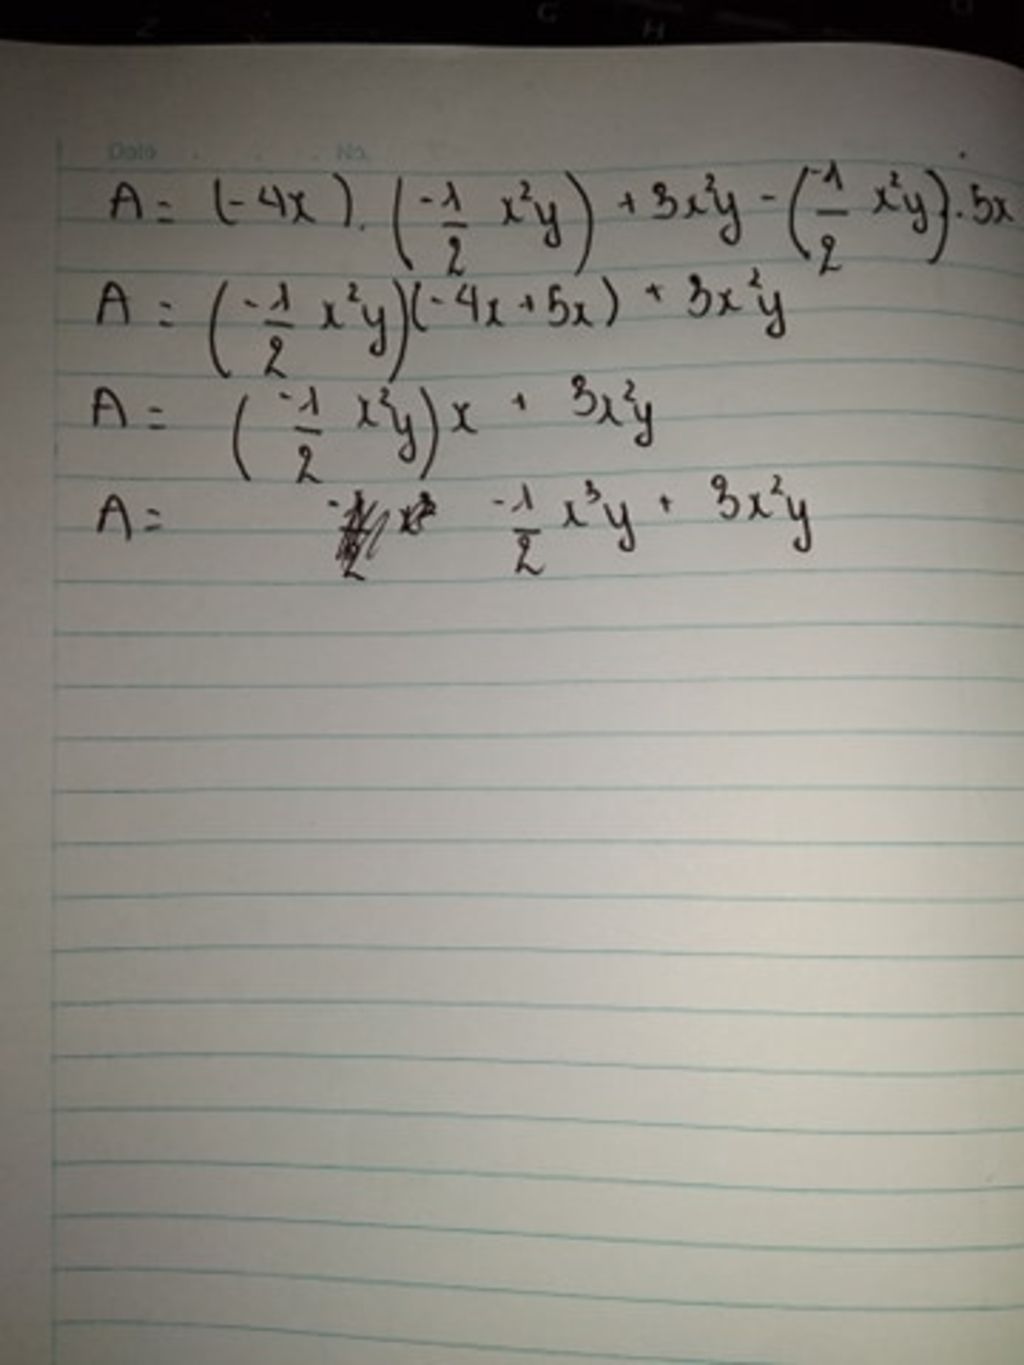 Date . . . No.
A = (-4x).(-1/2 x²y) + 3x²y - (-1/2 x²y).5x
A = (-1/2 x²y)(-4x+5x) + 3x²y
A = (-1/2 x²y)x + 3x²y
A = -1/2 x³y + 3x²y